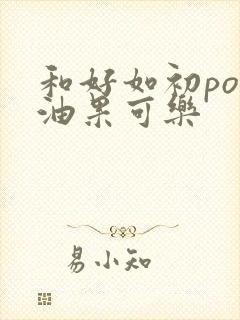 和好如初po
油果可樂
易小知